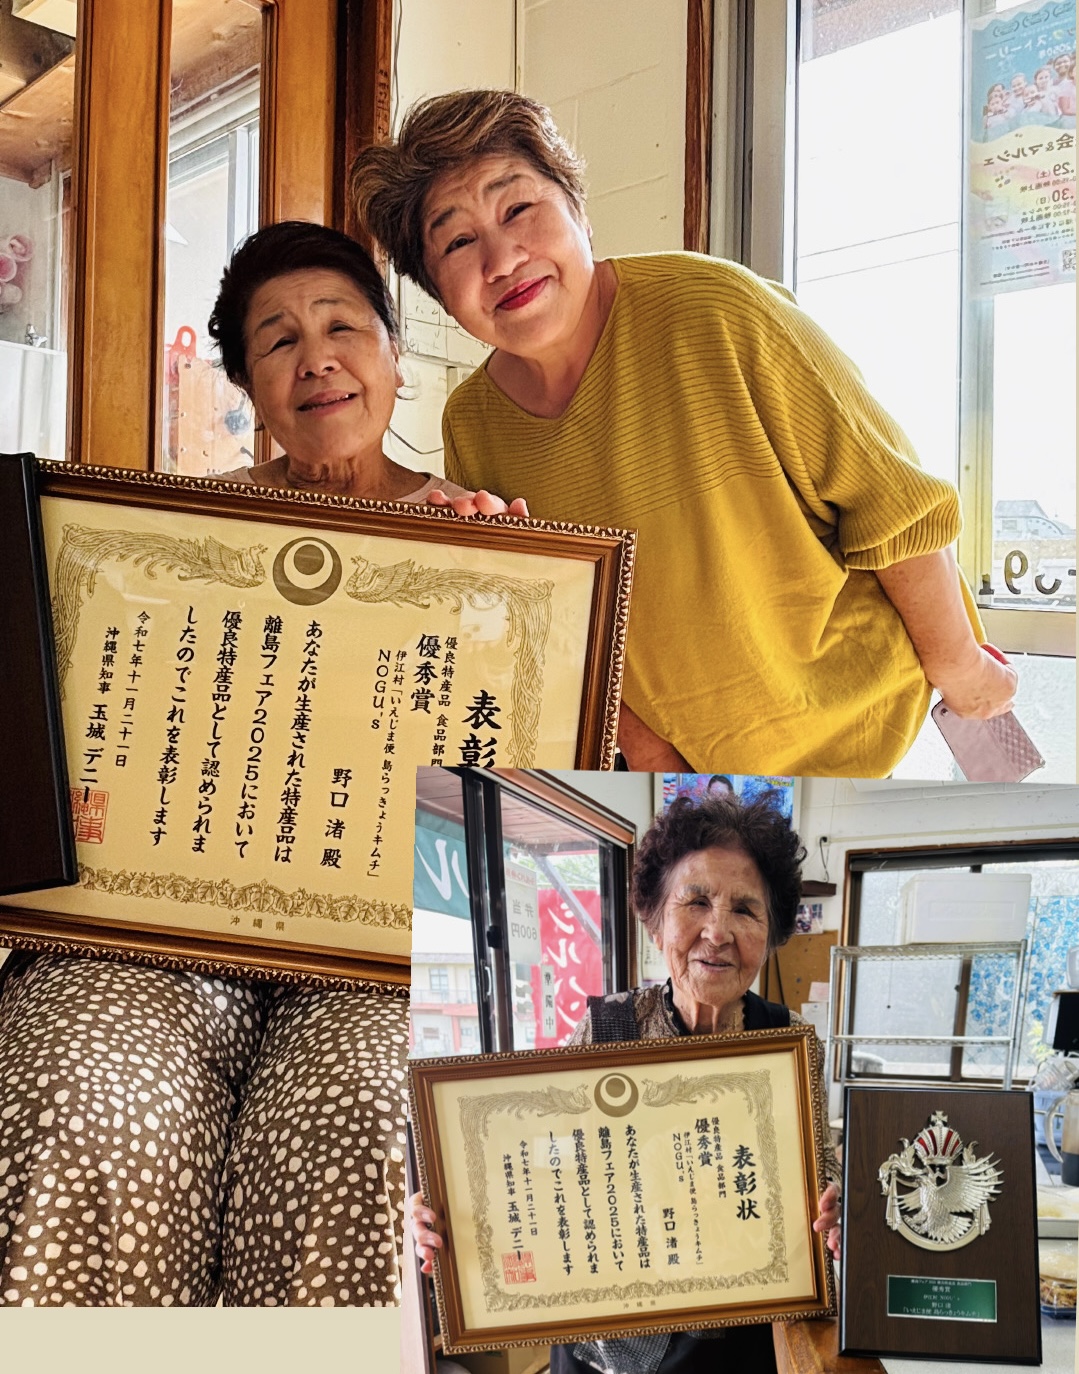 表彰
優良特産品 食品部門
優秀賞
伊江村「いえじま便 島らっきょうキムチ」
NOGU's
野口 渚 殿
あなたが生産された特産品は
離島フェア2025において
優良特産品として認められま
したのでこれを表彰します
令和七年十一月二十一日
沖縄県知事 玉城 デニー
沖縄県
会&マルシェ
29(土)
30(日)
弁当
600円
準備中
表彰状
優良特産品 食品部門
優秀賞
伊江村「いえじま便 島らっきょうキムチ」
NOGU's
野口 渚 殿
あなたが生産された特産品は
離島フェア2025において
優良特産品として認められま
したのでこれを表彰します
令和七年十一月二十一日
沖縄県知事 玉城 デニー
沖縄県
優秀賞
野口 渚
「いえじま便 島らっきょうキムチ」